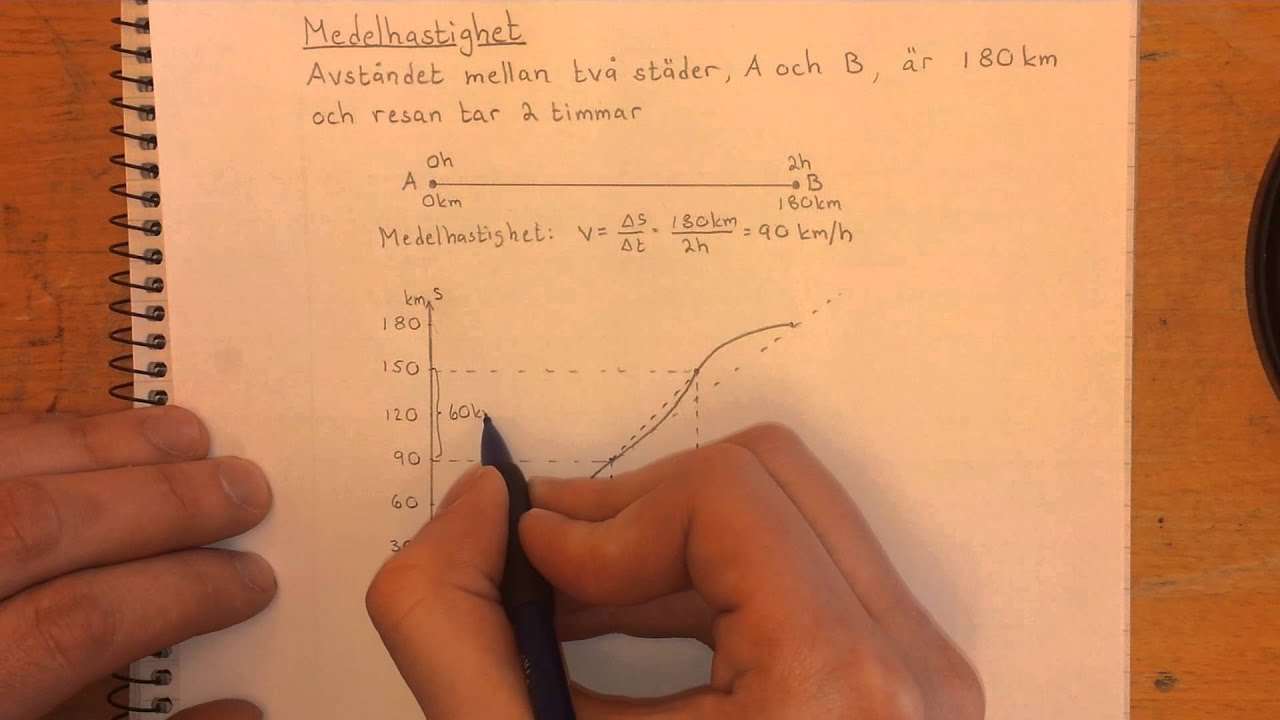 Medelhastighet
Avståndet mellan två städer, A och B, är 180 km
och resan tar 2 timmar
0h 2h
A B
0km 180km
Medelhastighet: V = ΔS/Δt = 180km/2h = 90 km/h
km s
180
150
120 60k
90
60